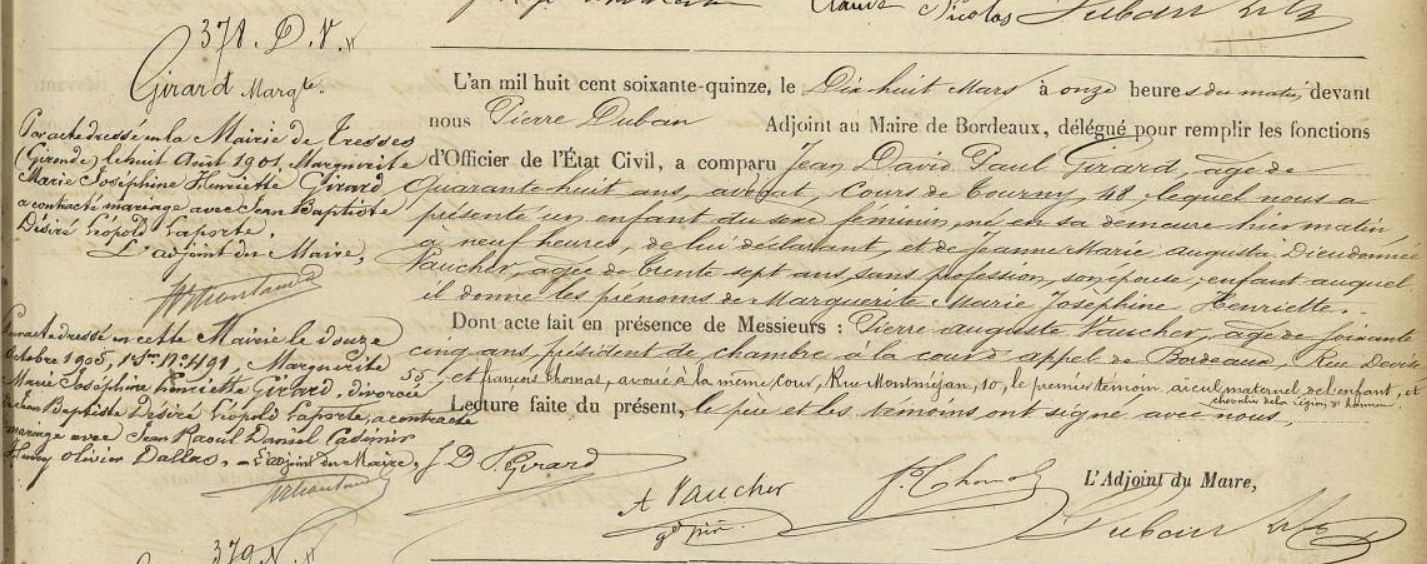 Claude Nicolas Duban
378. D. V.
Girard Margte.
L'an mil huit cent soixante-quinze, le Dix huit Mars à onze heures du matin, devant
nous Pierre Duban Adjoint au Maire de Bordeaux, délégué pour remplir les fonctions
d'Officier de l'État Civil, a comparu Jean David Paul Girard, agé de
quarante huit ans, avocat, Cours de Tourny, 48, lequel nous a
présenté un enfant du sexe féminin, né en sa demeure hier matin,
à neuf heures, de lui déclarant, et de Jeanne Marie Augusta Dieudonnée
Vaucher, agée de trente sept ans, sans profession, son épouse; enfant auquel
il donne les prénoms de Marguerite Marie Joséphine Henriette.
Dont acte fait en présence de Messieurs : Pierre Auguste Vaucher, agé de soixante
cinq ans, président de chambre à la cour d'appel de Bordeaux, Rue Devise
55, et françois Thomas, avoué à la même Cour, Rue Montméjan, 10, le premier témoin aïeul maternel de l'enfant, et
chevalier de la légion d'honneur.
Lecture faite du présent, le père et les témoins ont signé avec nous,
J D P Girard
A Vaucher
gd père
f. Thomas
L'Adjoint du Maire,
Duban
Par acte dressé en la Mairie de Tresses
(Gironde) le huit Août 1901, Marguerite
Marie Joséphine Henriette Girard
a contracté mariage avec Jean Baptiste
Désiré Léopold Laporte.
L'adjoint du Maire,
Par acte dressé en cette Mairie le douze
Octobre 1905, 1 Son No 491, Marguerite
Marie Joséphine Henriette Girard, divorcée
de Jean Baptiste Désiré Léopold Laporte, a contracté
mariage avec Jean Raoul Daniel Casimir
Henry Olivier Dallas. - L'adjoint du Maire,
379